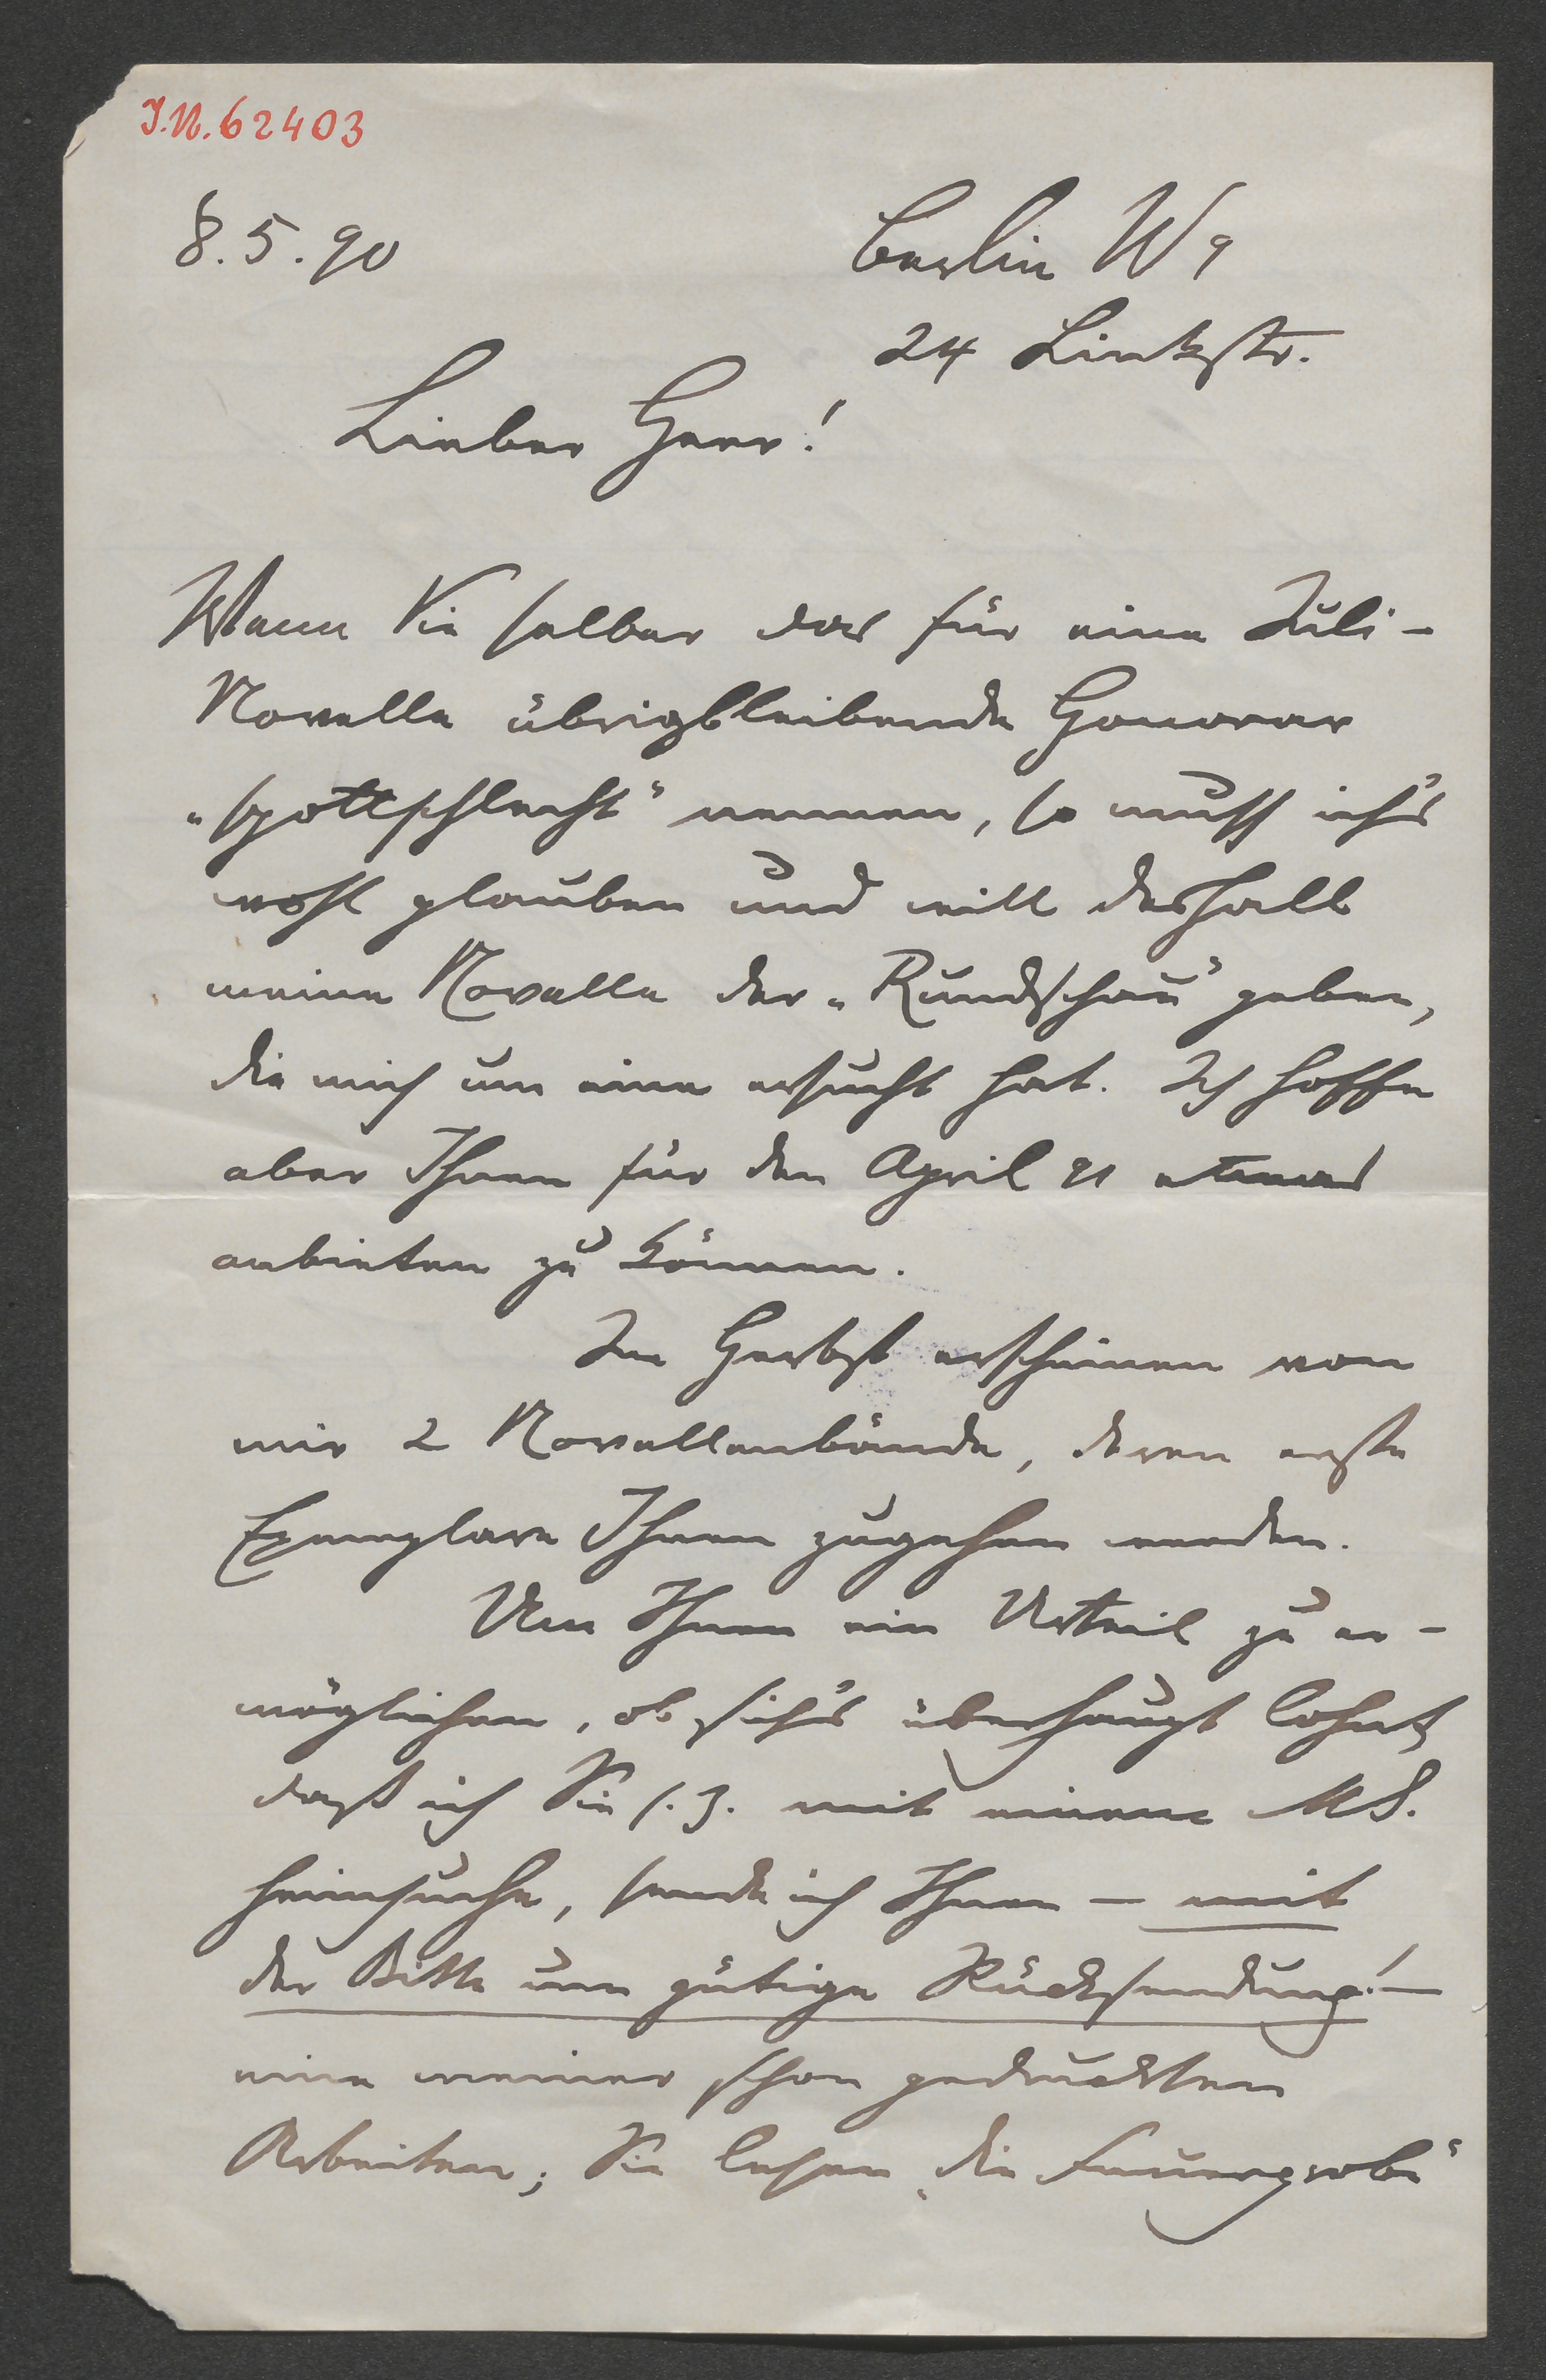 I.N. 62403
8.5.90
Berlin W 9
24 Linkstr.
Lieber Herr!
Wenn Sie selber das für eine Juli-
Novelle übrigbleibende Honorar
„spottschlecht“ nennen, so muss ich's
wohl glauben und will deshalb
meine Novelle der „Rundschau“ geben,
die mich um eine ersucht hat. Ich hoffe
aber Ihnen für den April 91 etwas
anbieten zu können.
Im Herbst erscheinen von
mir 2 Novellenbände, deren erste
Exemplare Ihnen zugehen werden.
Um Ihnen ein Urteil zu er-
möglichen, ob sich's überhaupt lohnt,
daß ich Sie s. Z. mit einem MS.
heimsuche, sende ich Ihnen – mit
der Bitte um gütige Rücksendung! –
eine meiner schon gedruckten
Arbeiten; Sie lesen „die Feuerprobe“